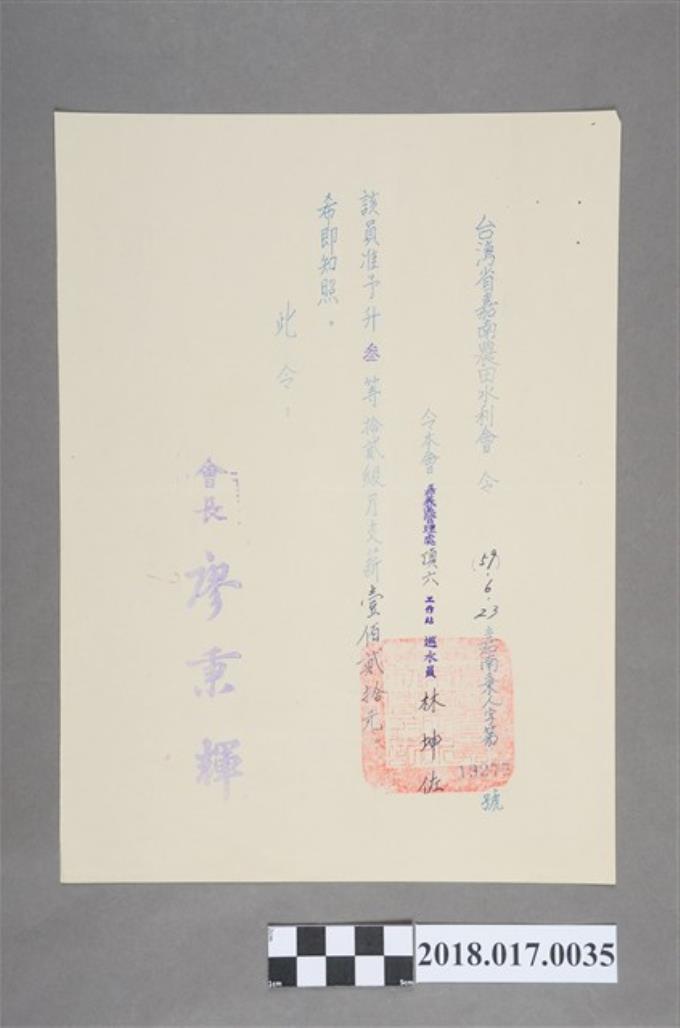 台灣省嘉南農田水利會 令 (59).6.23 嘉南秉人字第19275號
令本會嘉義區管理處頂六工作站巡水員林坤佐
該員准予升叁等拾貳級月支薪壹佰貳拾元。
希即知照。
此令。
會長 廖秉輝
2018.017.0035
1cm 5cm